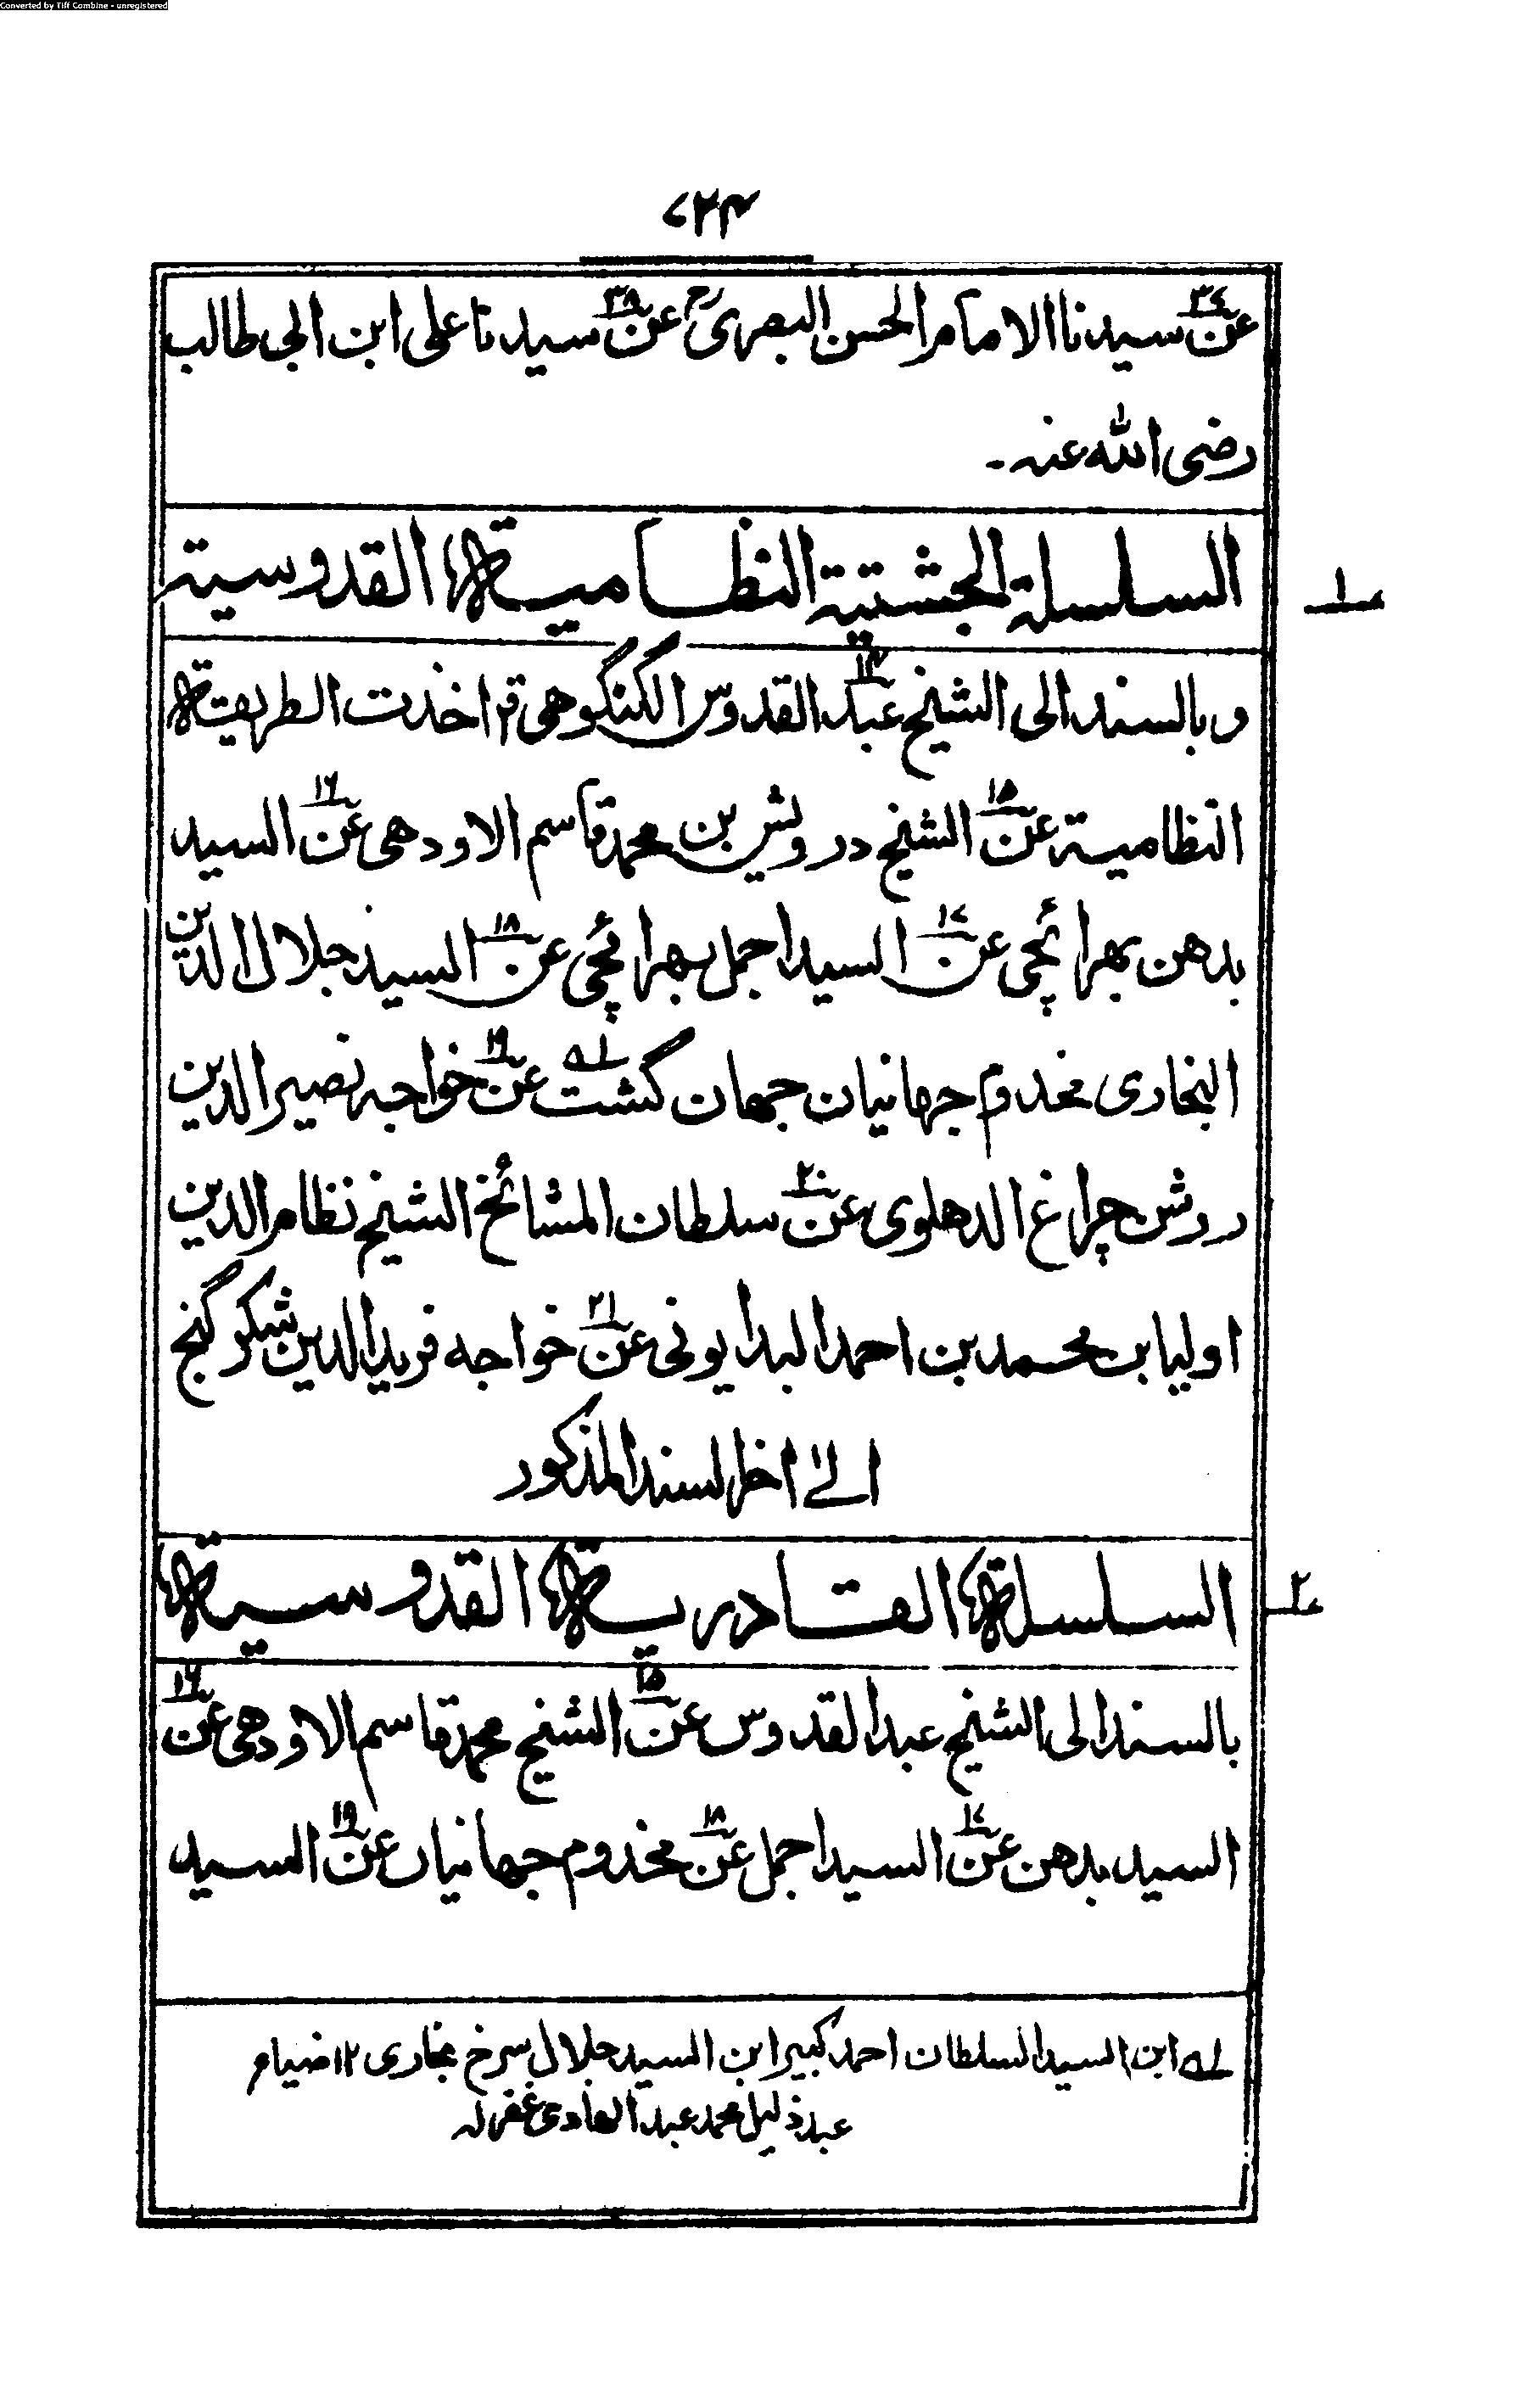 Converted by Tiff Combine - unregistered
۷۲۴
عن۳۷ سیدنا الامام الحسن البصریؒ عن۳۸ سیدنا علی ابن ابی طالب
رضی اللہ عنہ ۔
۱
السلسلۃ الچشتیۃ النظامیۃ القدوسیۃ
و بالسند الی الشیخ عبد۱۴ القدوس الگنگوھی قد اخذت الطریقۃ
النظامیۃ عن۱۵ الشیخ درویش بن محمد قاسم الاودھی عن۱۶ السید
بدھن بھرائچی عن۱۷ السید اجمل بھرائچی عن۱۸ السید جلال الدین
البخاری مخدوم جہانیان جہان گشت لہ عن۱۹ خواجہ نصیر الدین
روشن چراغ الدھلوی عن۲۰ سلطان المشائخ الشیخ نظام الدین
اولیا بن محمد بن احمد البدایونی عن۲۱ خواجہ فرید الدین شکر گنج
الیٰ اخر السند المذکور
۲
السلسلۃ القادریۃ القدوسیۃ
بالسند الی الشیخ عبد القدوس عن۱۵ الشیخ محمد قاسم الاودھی عن۱۶
السید بدھن عن۱۷ السید اجمل عن۱۸ مخدوم جہانیاں عن۱۹ السید
لہ ابن السید السلطان احمد کبیر ابن السید جلال سرخ بخاری ۱۲ ضیاء
عبد ذلیل محمد عبد الھادی غفرلہ